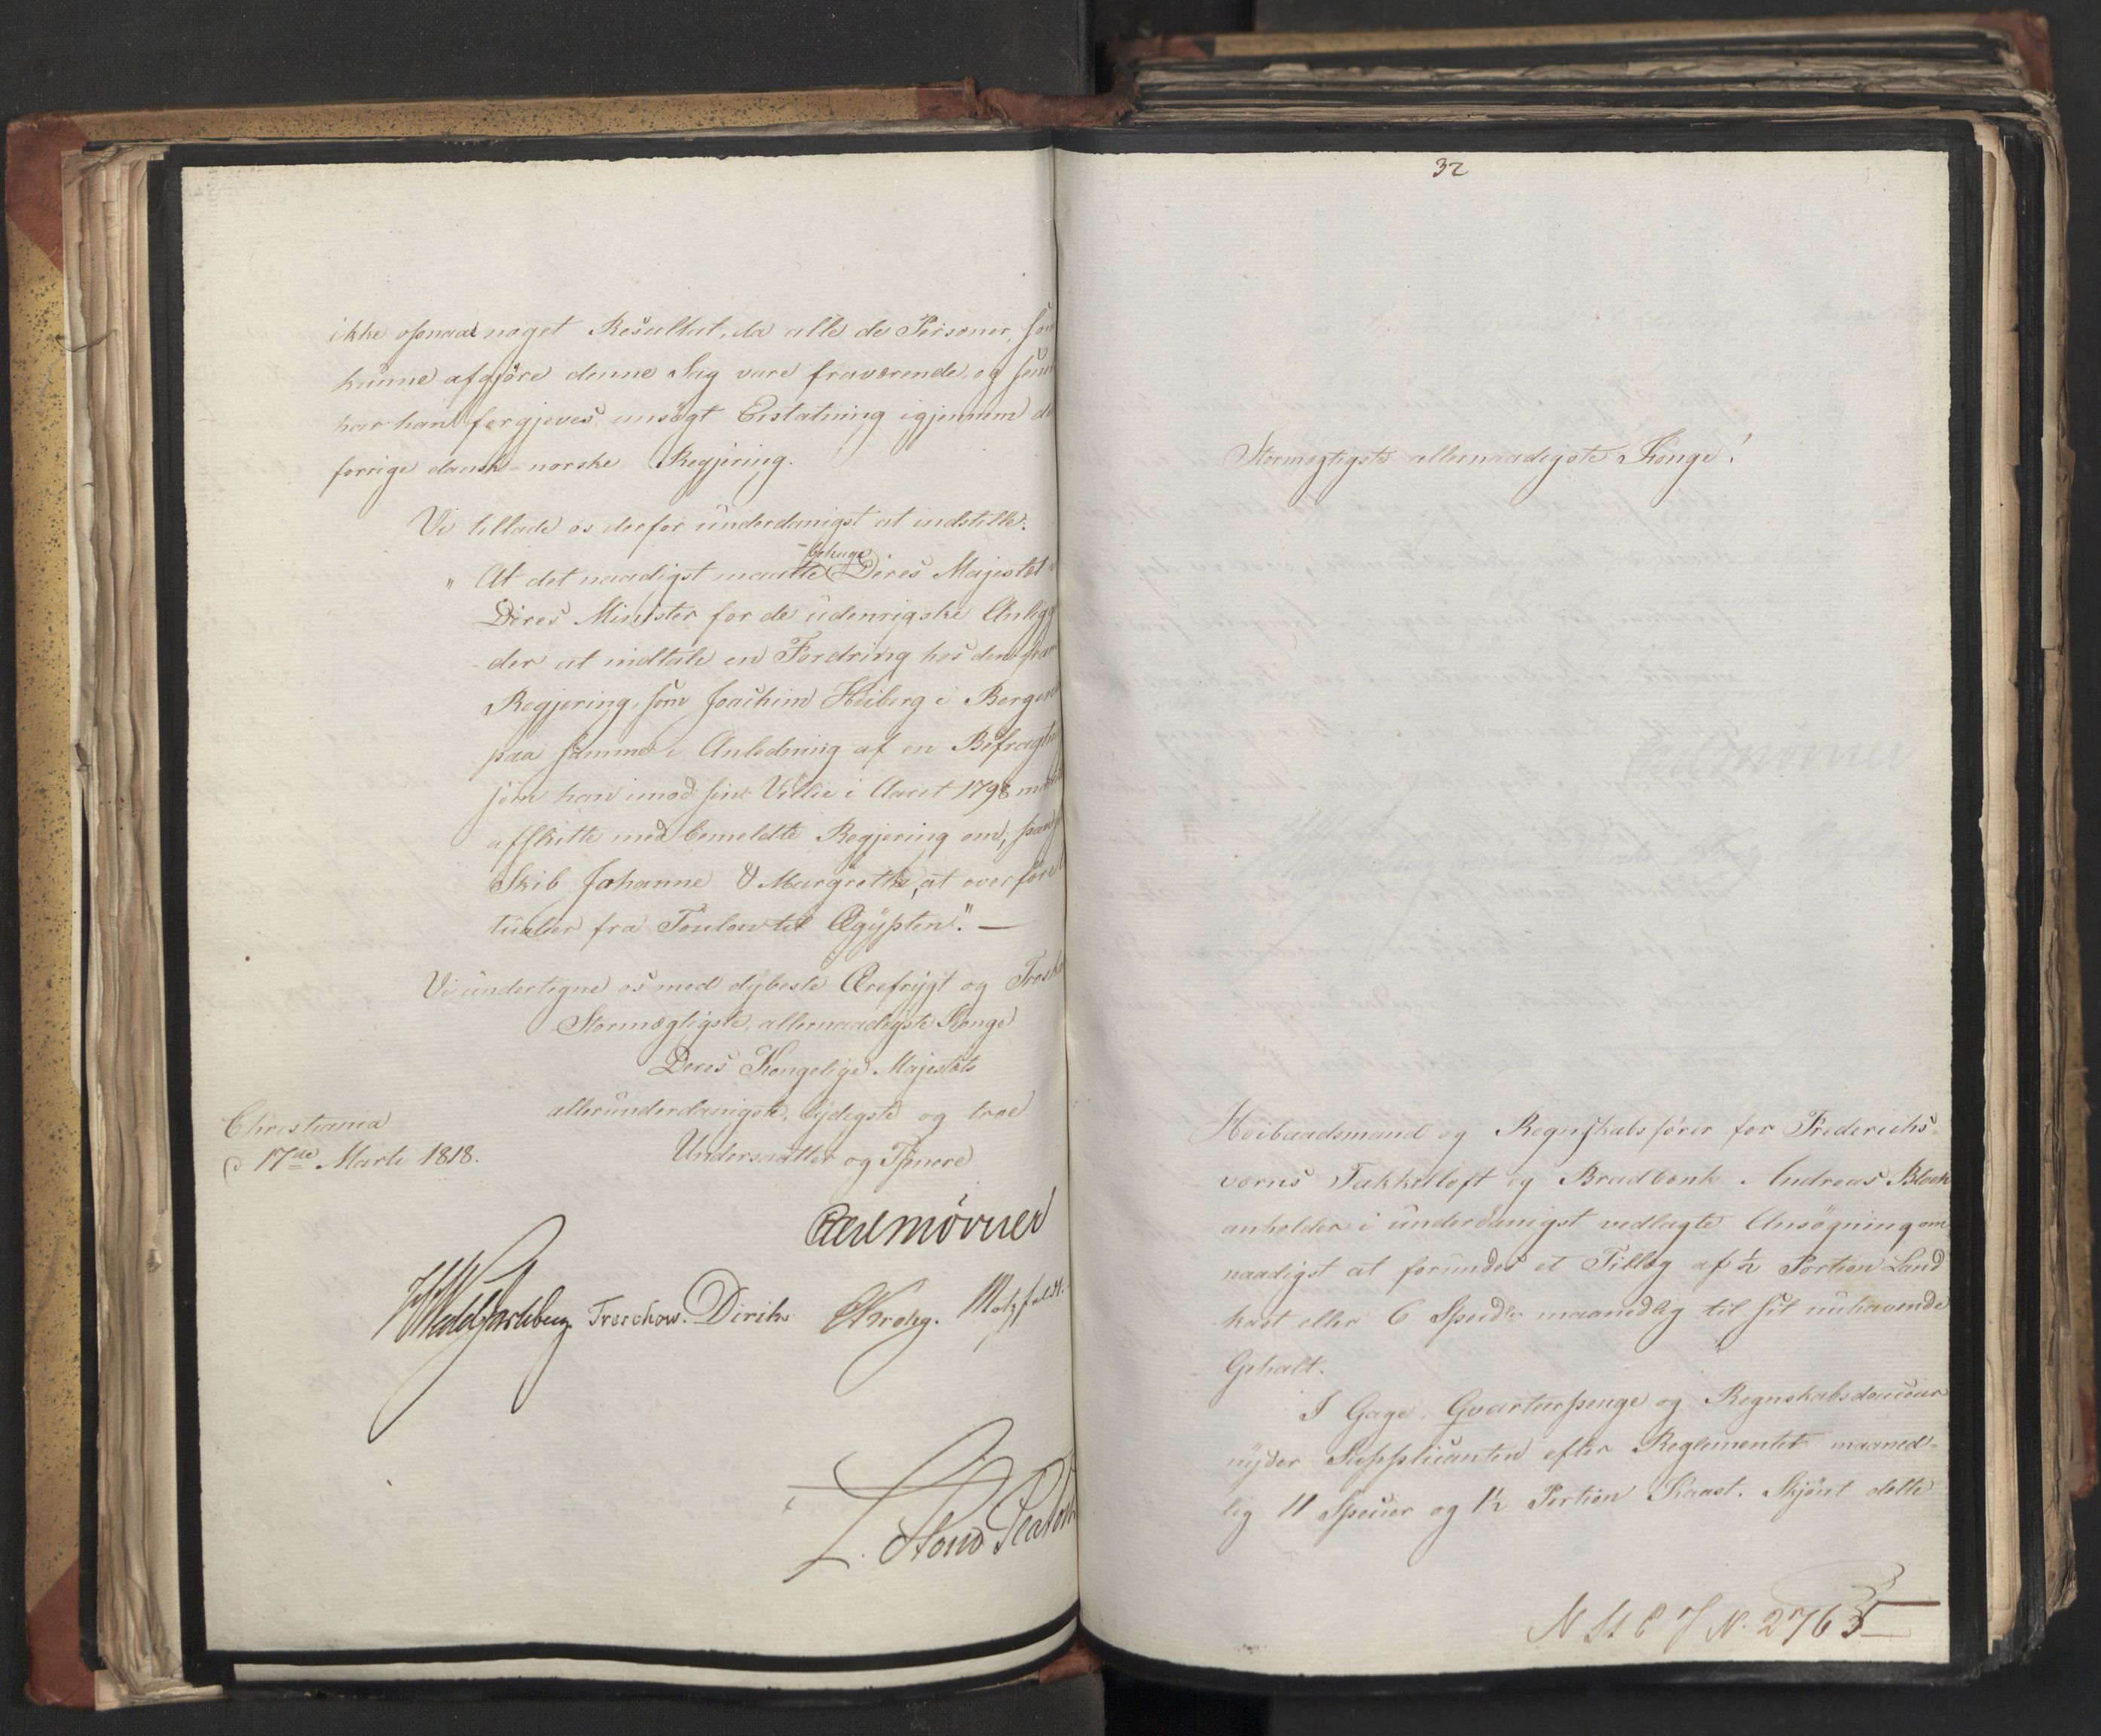 ikke opnaaet noget Resultat, da alle de Personer, som
kunne afgjøre denne Sag vare fraværende, og
har han forgjeves ansøgt Erstatning igjennem
forrige dansk-norske Regjering.
Vi tillade os derfor underdanigst at indstille:
behage
"At det naadigst maatte Deres Majestæt
Deres Minister for de udenrigske
der at indtale en Fordring hos den
Regjering, som Joachim Heiberg i Bergen
paa samme i Anledning af en
som han imod sin Villie i Aaret 1798
afslutte med bemeldte Regjering om, paa
Skib Johanne & Margrethe, at overføre
tualier fra Toulon til Ægypten". —
Vi undertegne os med dybeste Ærefrygt og
Stormægtigste, allernaadigste Konge
Deres Kongelige Majestæts
allerunderdanigste, lydigste og troe
Undersaatter og Tjenere
Christiania
d 17de Marts 1818.
Carl Mörner
Wedel Jarlsberg. Treschow. Diriks CKrohg. Motzfeldt.
L. Stoud Platou
32
Stormægtigste allernaadigste Konge!
Høibaadsmand og Regnskabsfører for Frederichs-
værns Takkelloft og Bradbænk Andreas Bloch
anholder i underdanigst vedlagte Ansøgning om
naadigst at forundes et Tillæg af ½ Portion Land
kost eller 6 Spedlr maanedlig til sit nuhavende
Gehalt.
I Gage, Qvarteerpenge og Regnskabsdouceur
nyder Supplicanten efter Reglementet maaned-
lig 11 Specier og 1½ Portion Kaast. Skjønt dette
N St C J N. 2763